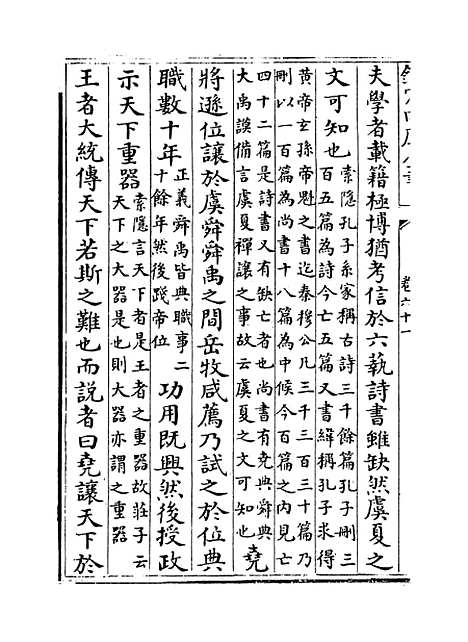 卷六十一
夫學者載籍極博猶考信於六執詩書雖缺然虞夏之
文可知也
索隱孔子系家稱古詩三千餘篇孔子刪三
百五篇為詩今亡五篇又書緯稱孔子求得
黃帝玄孫帝魁之書迄秦穆公凡三千三百三十篇乃
刪以一百篇為尚書十八篇為中候今百篇之内見亡
四十二篇是詩書又有缺亡者也尚書有堯典舜典
大禹謨備言虞夏禪讓之事故云虞夏之文可知也
堯
將遜位讓於虞舜舜禹之間岳牧咸薦乃試之於位典
職數十年
正義舜禹皆典職事二
十餘年然後踐帝位
功用既興然後授政
示天下重器
索隱言天下者是王者之重器故莊子云
天下之大器是也則大器亦謂之重器
王者大統傳天下若斯之難也而說者曰堯讓天下於